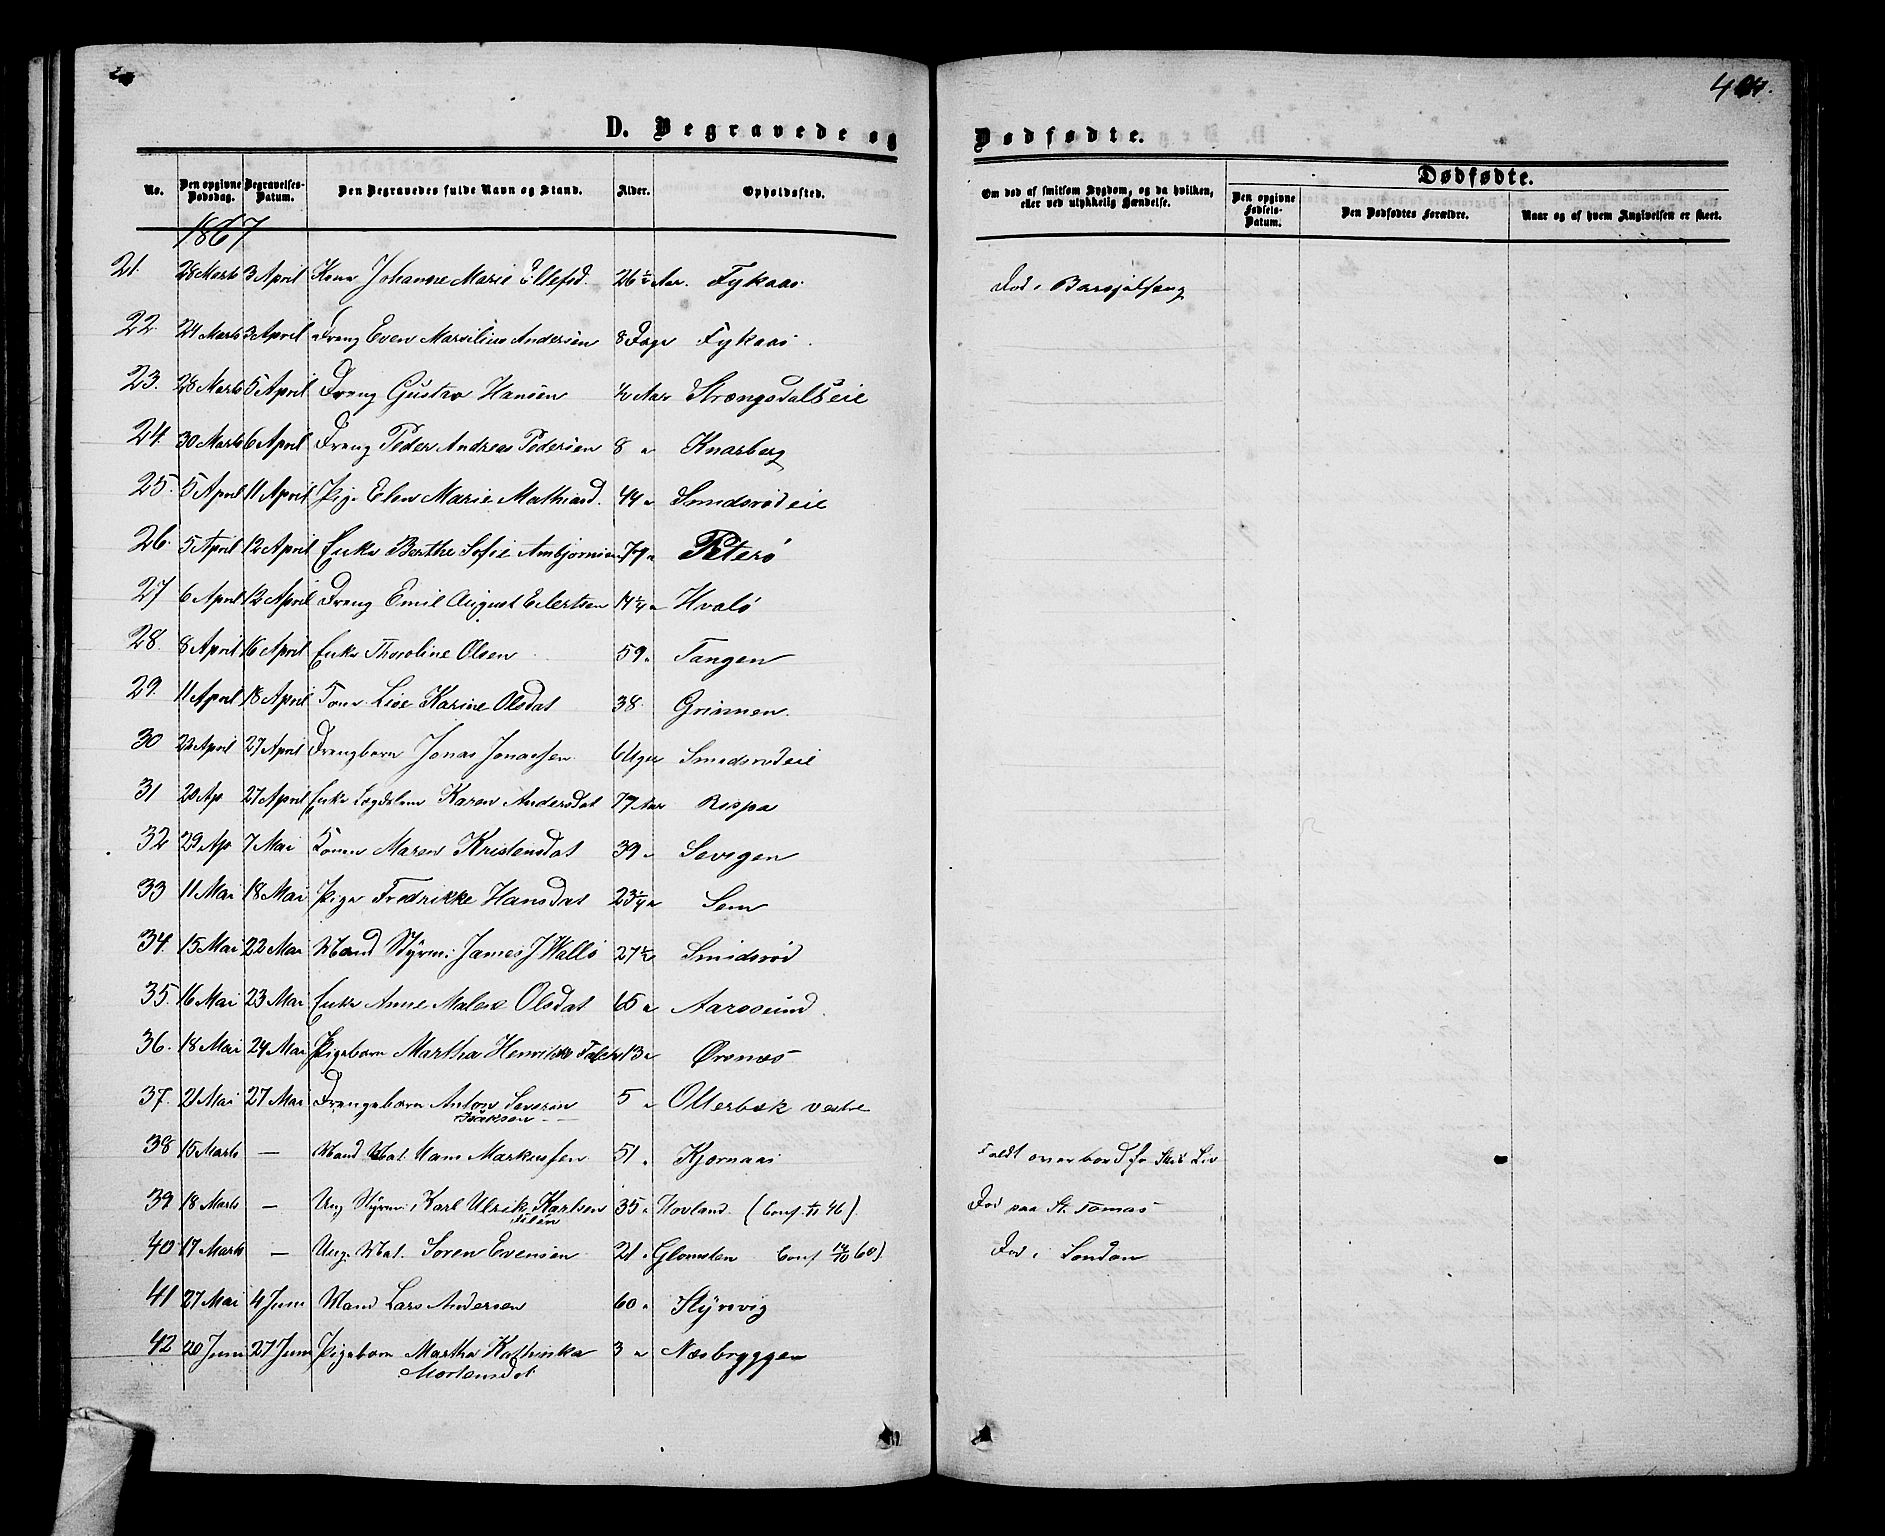 D. Begravede og Dødfødte.
No. Den opgivne Dødsdag. Begravelses-Datum. Den Begravedes fulde Navn og Stand. Alder. Opholdssted. Om død af smitsom Sygdom, og da hvilken, eller ved ulykkelig Hændelse. Dødfødte. Den opgivne Fødsels-Datum. Den Dødfødtes Forældre. Naar og af hvem Angivelsen er skeet.
1867
21. 28 Marts 3 April Kone Johanne Marie Ellefsd. 26 1/2 Aar. Fykaas. Død i Barselseng
22. 24 Marts 3 April Dreng Even Marsilius Andersen 8 Dage Fykaas.
23. 28 Marts 5 April Dreng Gustav Hansen 1/2 Aar Strængsdalseie
24. 30 Marts 6 April Dreng Peder Andreas Pedersen 8 " Knarberg
25. 5 April 11 April Pige Elen Marie Mathiasd. 44 " Smidsrødeie
26. 5 April 12 April Enke Berthe Sofie Ambjørnsen 79 " Peterø
27 6 April 12 April Dreng Emil August Eilertsen 14 1/4 " Hvalø
28. 8 April 16 April Enke Thoroline Olsen 59 " Tangen
29. 11 April 18 April Kone Lise Karine Olsdat 38 Grimmen.
30 22 April 27 April Drengbarn Jonas Jonassen 6 Uger Smidsrødeie
31 20 Ap 27 April Enke Karen Andersdat 79 Aar Rospa
32 29 Ap 7 Mai Konen Maren Kristensdat 39 "
33 11 Mai 18 Mai Pige Fredrikke Hansdat 23 1/4 " Sem
34. 15 Mai 22 Mai Mand Styrm: James J Wallø 27 1/2 Smidsrød
35. 16 Mai 23 Mai Enke Anne Malene Olsdat 65 " Aarøsund.
36. 18 Mai 24 Mai Pigebarn Martha Henrikke 13 " Ørsnæs
37. 21 Mai 27 Mai Drengebarn Anton Severin
Isaksen 5 " Otterbæk vestre
38 15 Marts — Mand Mat. Hans Markussen 51 " Kjørnaas Faldt overbord fr Skib Liv
39 18 Marts — Ung Styrm: Karl Ulrik Karlsen 35 " Hovland. (Conf. 46). Død paa St. Tomas
40 17 Marts — Ung. Mat. Søren Evensen 21 " Glomsten Conf 14/10 60) Død i London
41 27 Mai 4 Juni Mand Lars Andersen 60 " Styrsvig
42 20 Juni 27 Juni Pigebarn Martha Kathinka
Mortensdat 3 " Næsbryggen